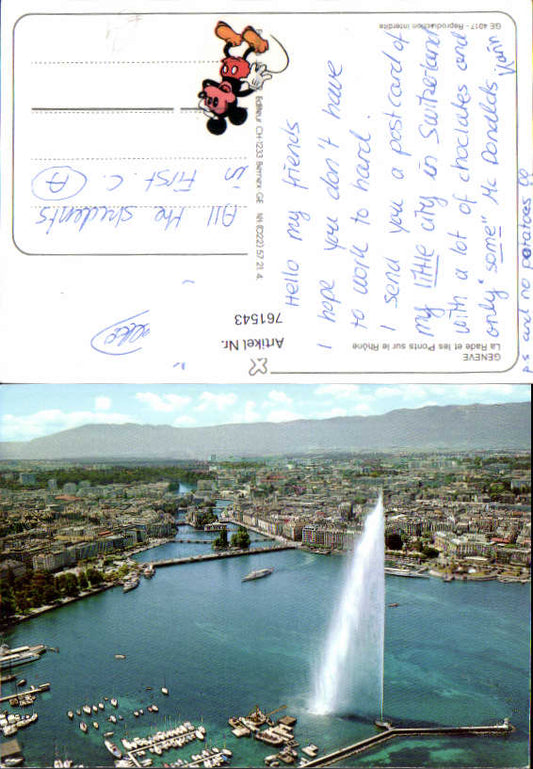 GENEVE
La Rade et les Ponts sur le Rhône
GE 4017 - Reproduction interdite
Hello my friends
I hope you don't have
to work to hard.
I send you a postcard of
my little city in Switzerland
with a lot of choclates and
only "some" Mc Donalds
Karin
ps and no potatoes
Editeur CH-1233 Bernex GE
(022) 57 21 4
All the students
in First. C. A
Artikel Nr.
761543